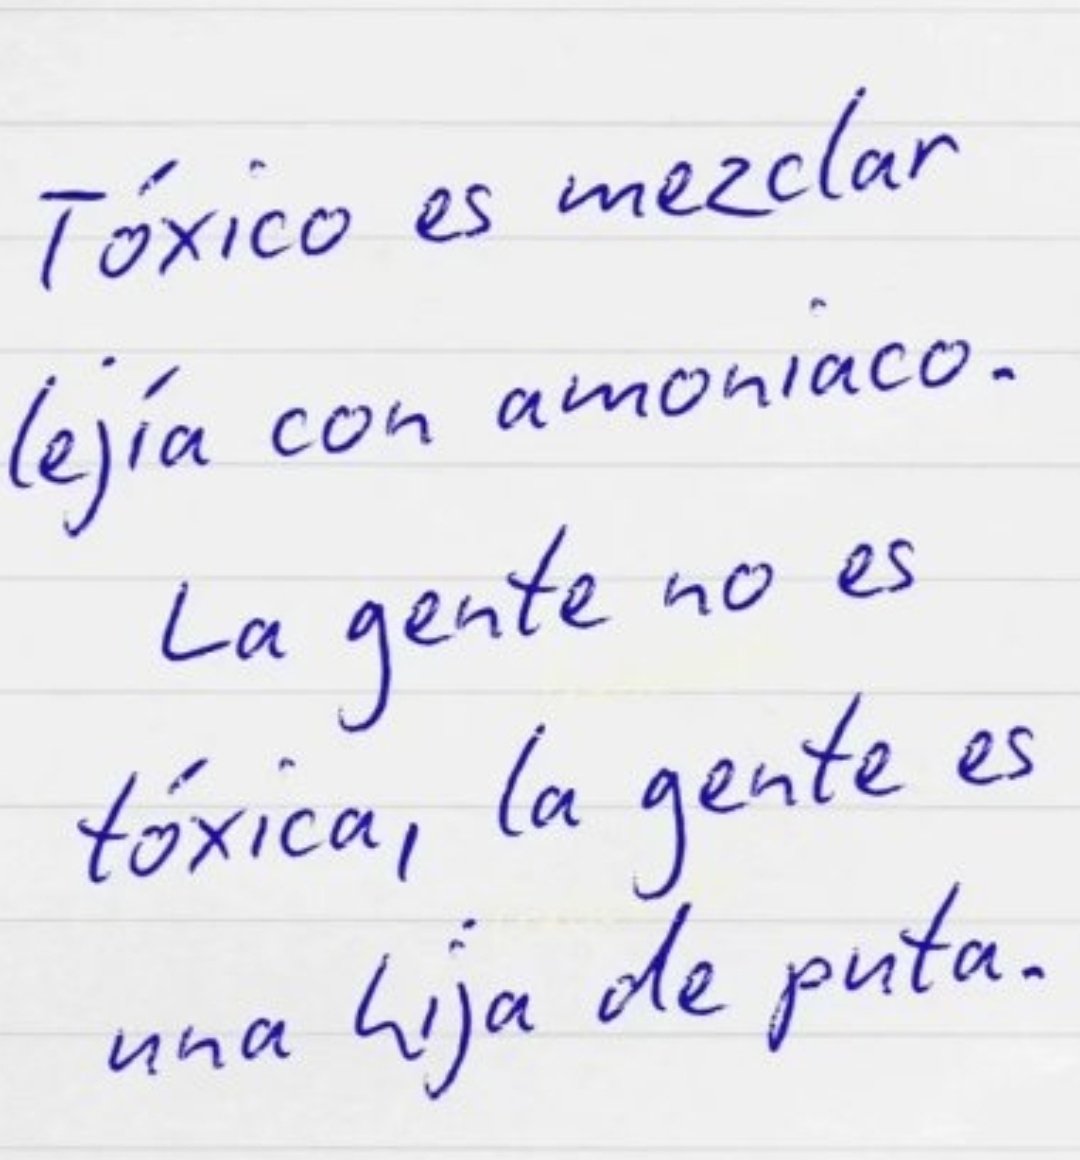 Tóxico es mezclar
lejía con amoniaco.
La gente no es
tóxica, la gente es
una hija de puta.